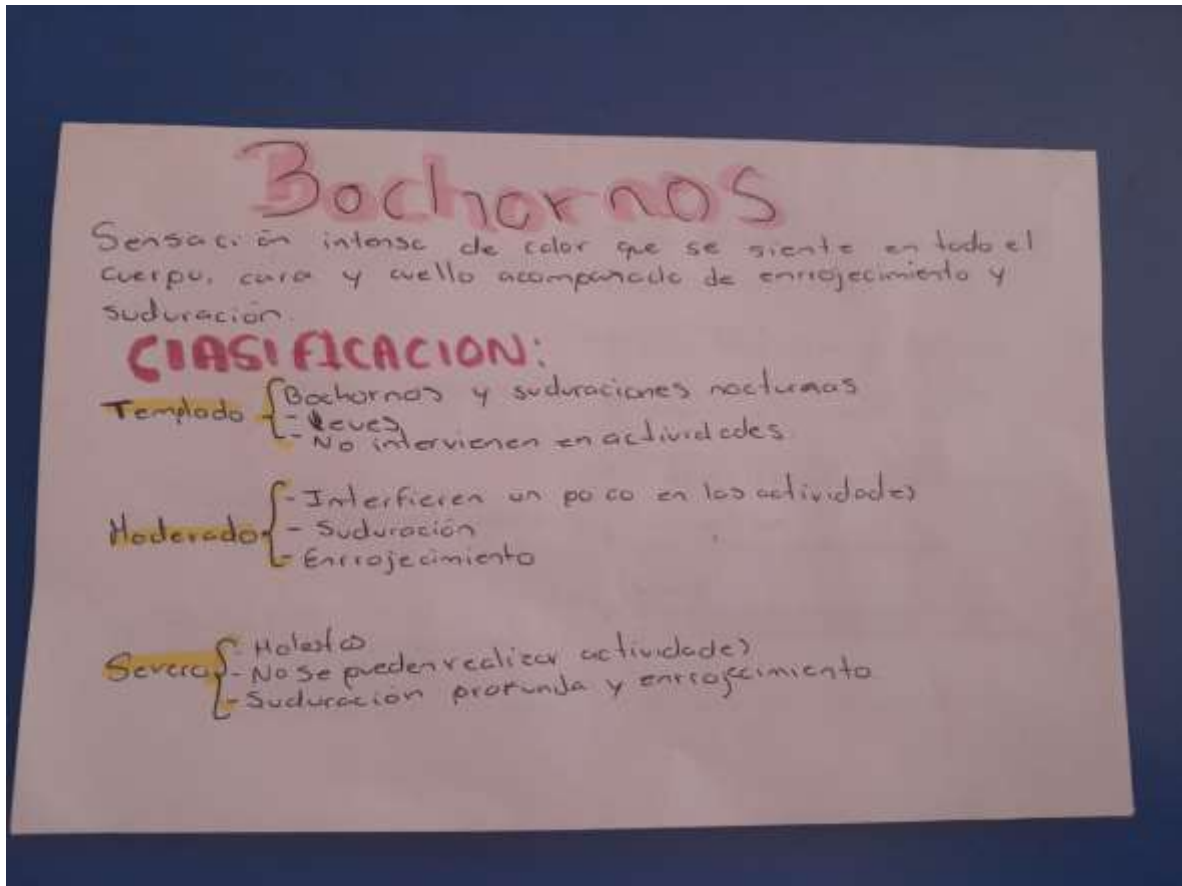 Bochornos
Sensación intensa de calor que se siente en todo el
cuerpo, cara y cuello acompañado de enrrojecimiento y
suduración.
ClASIFICACION:
Templado
Bochornos y suduraciones nocturnas
- leves
- No intervienen en actividades.
Moderado
- Interfieren un poco en las actividades
- Suduración
- Enrrojecimiento
Severo
- Molestos
- No se pueden realizar actividades
- Suduración profunda y enrrojecimiento